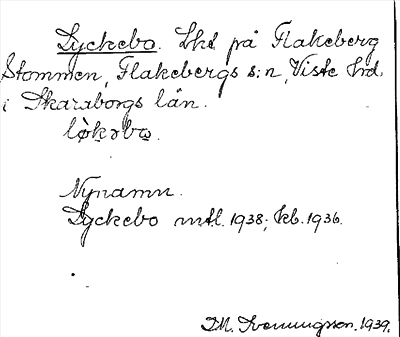 Lyckebo. Lht på Flakeberg
Stommen, Flakebergs s:n, Viste hrd.
i Skaraborgs län.
løkəbo.
Nynamn.
Lyckebo mtl. 1938; kb. 1936.
I.M. Svenungsson. 1939.